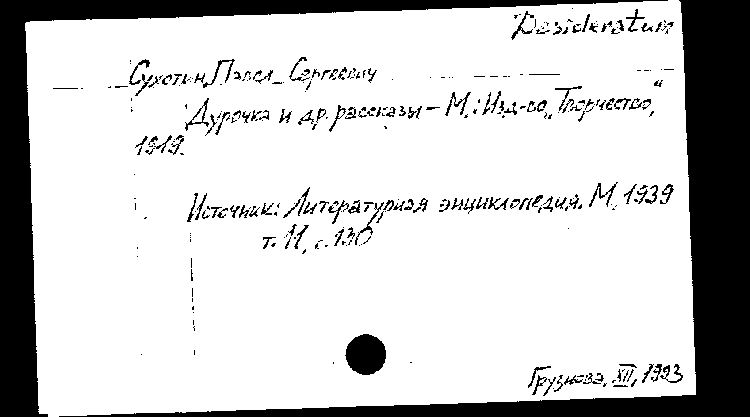 Desideratum
Сухотин, Павел Сергеевич
Дурочка и др. рассказы – М.: Изд-во „Творчество",
1919.
Источник: Литературная энциклопедия. М, 1939
т. 11, с. 130
Грузнова, XII, 1993